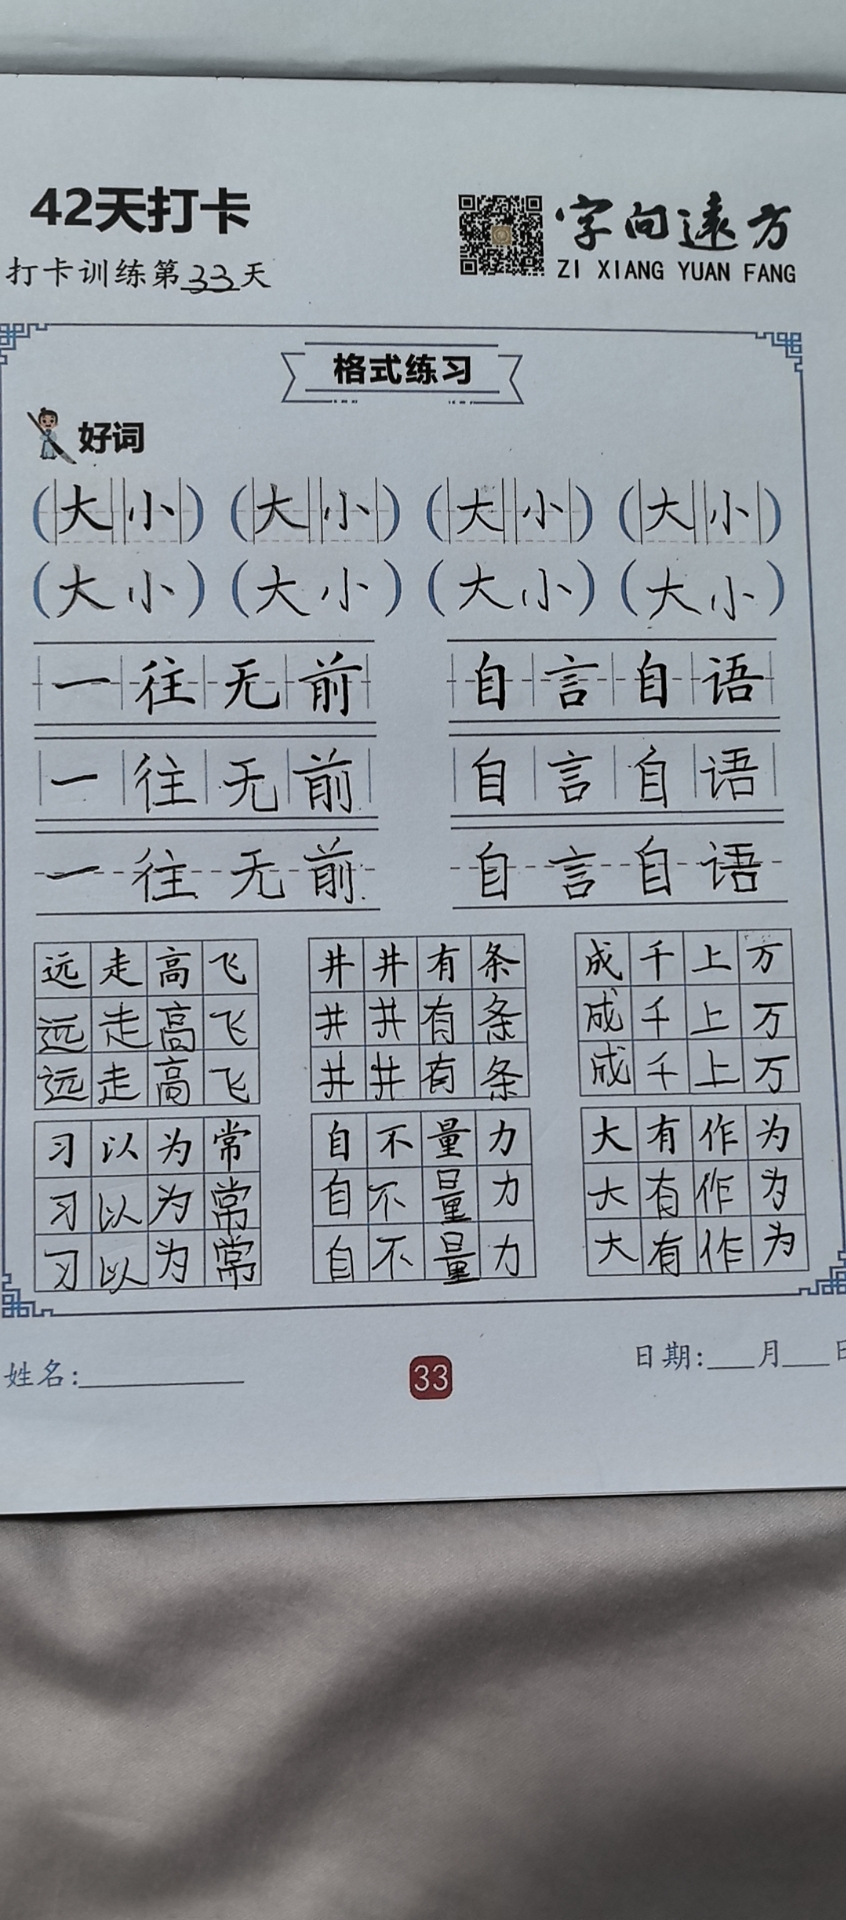 42天打卡
字向遠方
ZI XIANG YUAN FANG
打卡训练第33天
格式练习
好词
(大小) (大小) (大小) (大小)
(大小) (大小) (大小) (大小)
一往无前 自言自语
一往无前 自言自语
一往无前 自言自语
远走高飞 井井有条 成千上万
远走高飞 井井有条 成千上万
远走高飞 井井有条 成千上万
习以为常 自不量力 大有作为
习以为常 自不量力 大有作为
习以为常 自不量力 大有作为
姓名:
33
日期: 月 日